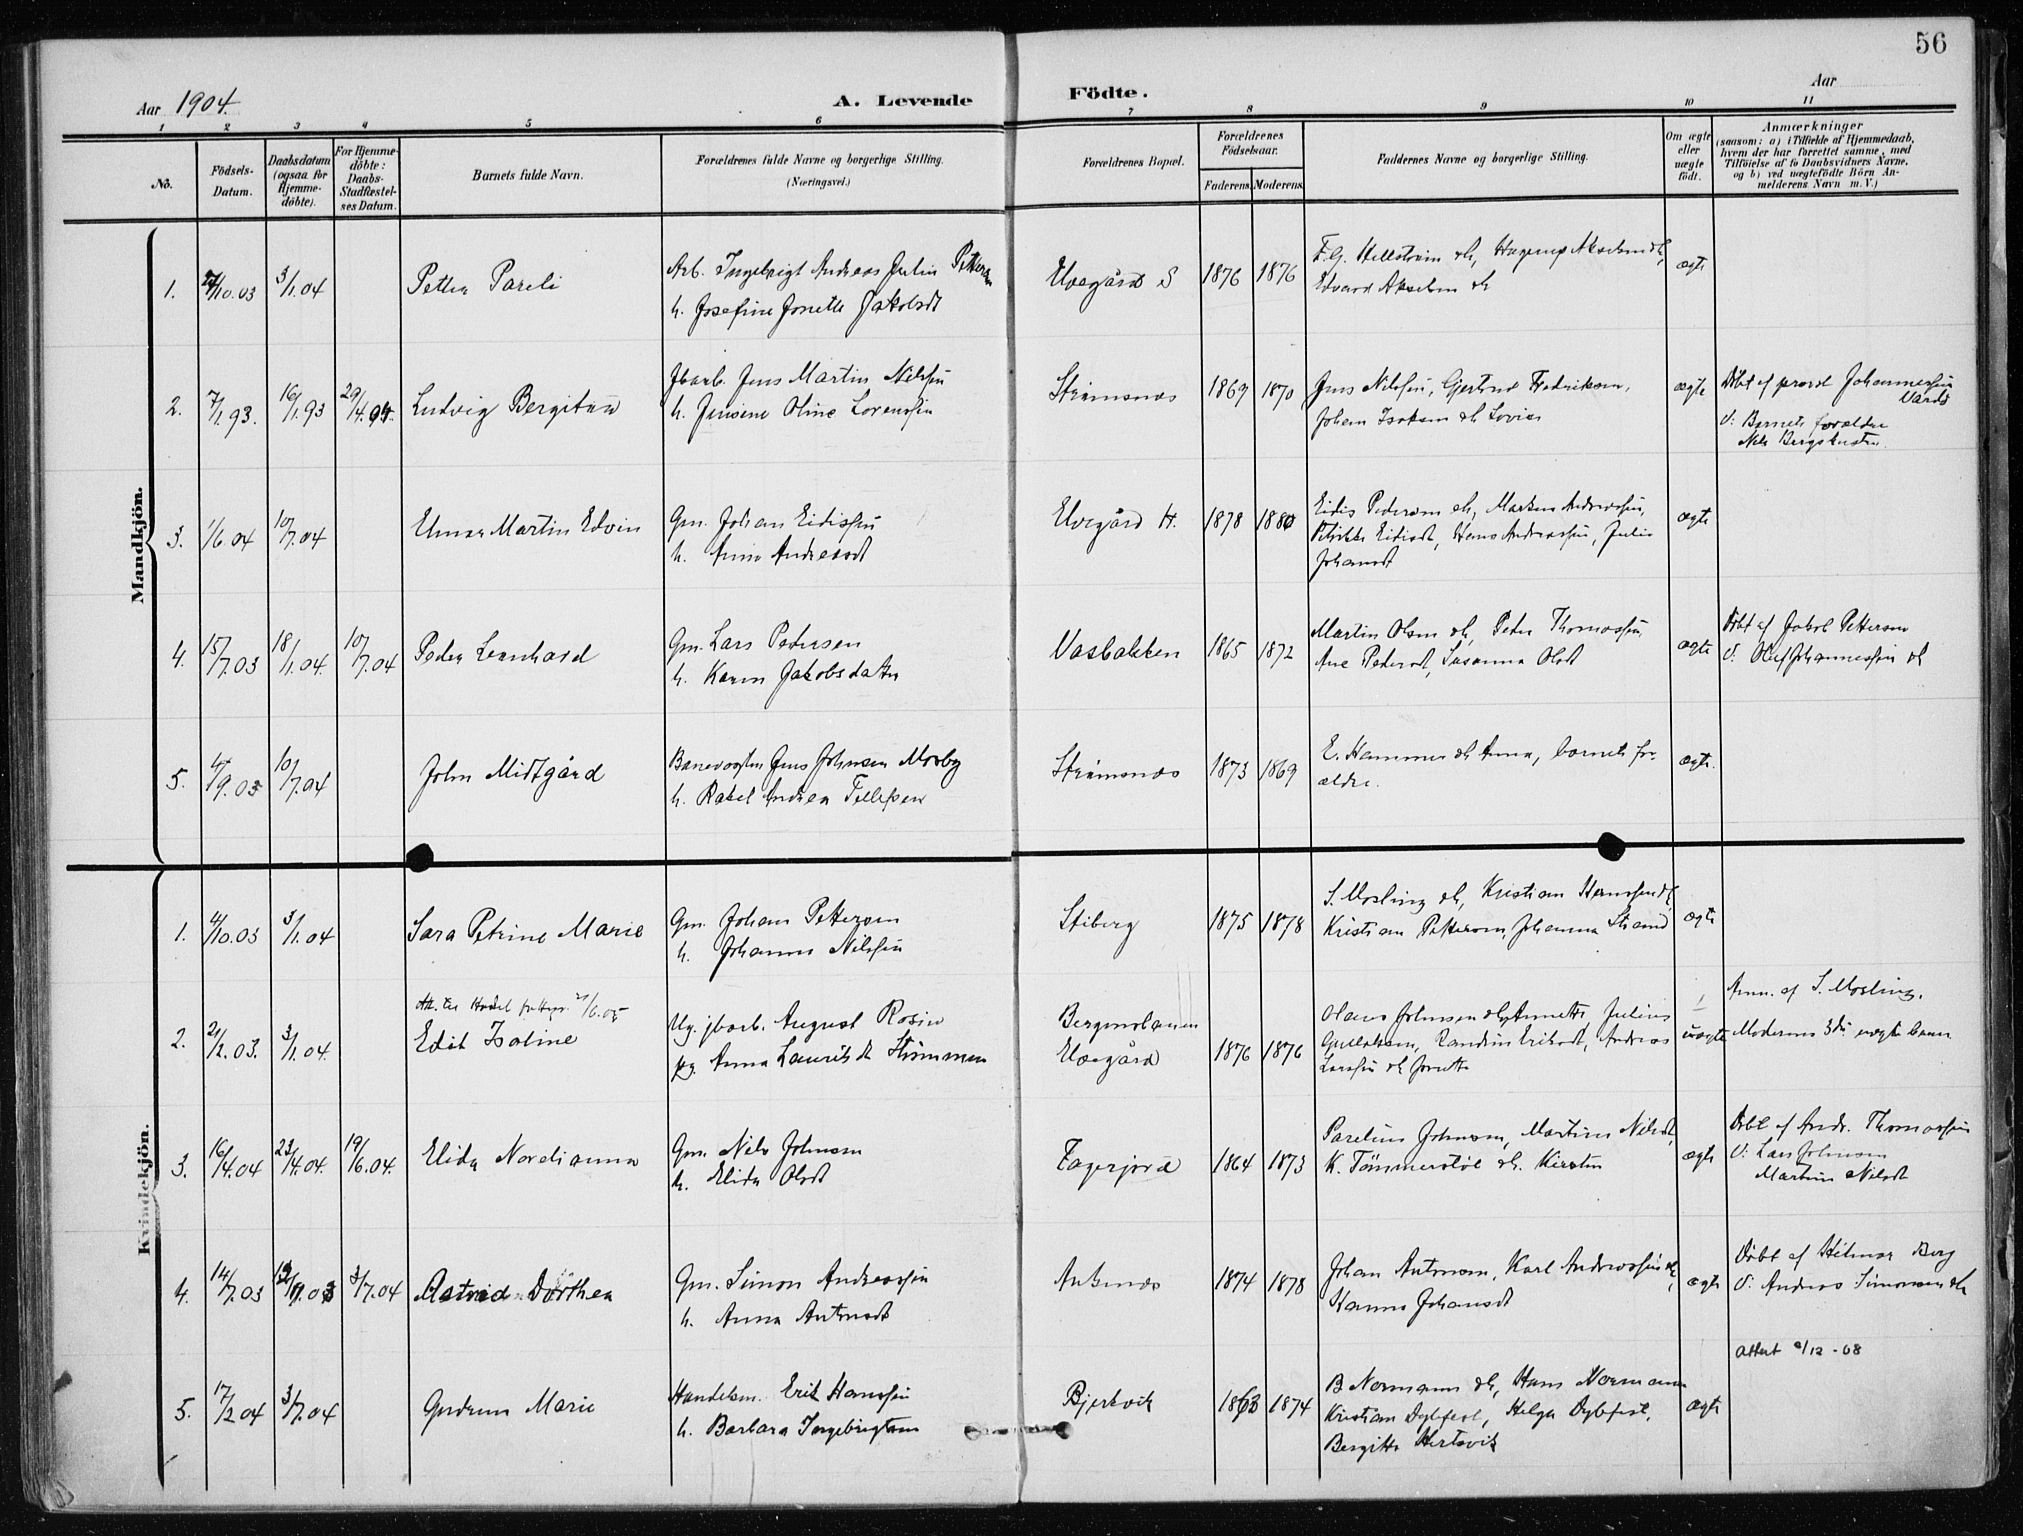 56
Aar 1904.
A. Levende Födte.
Aar
1 2 3 4 5 6 7 8 9 10 11
No.
Födsels-Datum.
Daabsdatum (ogsaa for Hjemme-döbte).
For Hjemme-döbte: Daabs-Stadfæstel-ses Datum.
Barnets fulde Navn.
Forældrenes fulde Navne og borgerlige Stilling.
(Næringsvei.)
Forældrenes Bopæl.
Forældrenes Födselsaar.
Faderens. Moderens.
Faddernes Navne og borgerlige Stilling.
Om ægte eller uægte födt.
Anmærkninger
(saasom: a) i Tilfælde af Hjemmedaab, hvem der har forrettet samme, med Tilföielse af to Daabsvidners Navne, og b) ved uægtefödte Börn An-melderens Navn m. V.)
Mandkjön.
1. /10.03 3/1.04 Petter Pareli
Arb. Ingebrigt Andreas Julin Petters
h. Josefine Jonette Jakobsdt
Elvegård S 1876 1876
F.G. Hellstrøm &, Hagerup Akselsen &,
Edvard Akselsen &
ægte
2. 7/1.93. 16/1.93 29/4.94 Ludvig Bergiton
Jbarb. Jens Martin Nilssen
h. Jensine Oline Lorenssen
Strømsnes 1869 1870
Jens Nilssen, Gjertrud Fredriksen,
Johan Isaksen & Lovise
ægte
Døbt af provst Johannessen
Vardø
V: Barnets forældre
3. 1/6.04 10/7.04 Elmar Martin Edvin
Gm. Johan Eidissen
h. Anna Andreasdt
Elvegård H. 1878 1880
Eidis Pedersen &, Markus Andreassen,
Petrikke Eidisdt, Hans Andreassen, Julie
Johansdt
ægte
4. 15/7.03 18/1.04. 10/7.04 Peder Lennhard
Gm. Lars Pedersen
h. Karen Jakobsdatter
Vasbakken 1865 1872
Martin Olsen &, Peter Thomassen,
Ane Pedersdt, Susanna Olsdt
ægte
Døbt af Jakob Pettersen
V: Oluf Johannessen &
5. 4/9.03 10/7.04 John Midtgård
Banevogter Jens Johnsen Mosby
h. Rakel Andrea Tellefsen
Strømsnes 1873 1869
E. Hammer & Anna, barnets for-
ældre.
ægte.
Kvindekjön.
1. 4/10.03 3/1.04 Sara Petrine Marie
Gm. Johan Pettersen
h. Johanna Nilssen
Stiberg 1875 1878
S. Mosling &, Kristian Hanssen &,
Kristian Pettersen, Johanna Strand
ægte
2. 2/12.03. 3/1.04. Edit Isoline
Ug. jbarb. August Rosin
pg. Anna Lauritsdt Strømmen
Elvegård 1876 1876
Olaus Johnsen & Annette, Julius
Gustavsen, Randine Eriksdt, Andreas
Larssen & Jonette
uægte
Anm. af S. Mosling.
Moderens 3die uægte barn
3. 16/4.04 23/4.04. 19/6.04. Elida Nordianna
Gm. Nils Johnsen
h. Elida Olsdt
Fagerjord 1864 1873
Parelius Johnsen, Martine Nilsdt,
K. Tømmerstøl &. Kirsten
ægte
Døbt af Andr. Thomassen
V: Lars Johnsen
Martine Nilsdt
4. 14/7.03 3/7.04 Astrid Dorthea
Gm. Simon Andreassen
h. Anna Antonsdt
Ankenes 1874 1878
Johan Antonsen, Karl Andreassen &,
Hanna Johansdt
ægte
Døbt af Hilmar Berg
V: Andreas Simonsen &
5. 17/2.04 3/7.04 Gudrun Marie
Handelsm. Erik Hanssen
h. Barbara Ingebrigtsen
Bjerkvik 1863 1874
B Normann &, Hans Normann
Kristian Dybfest, Helga Dybfest,
Bergitte Hertvik
ægte
Attest /12-68